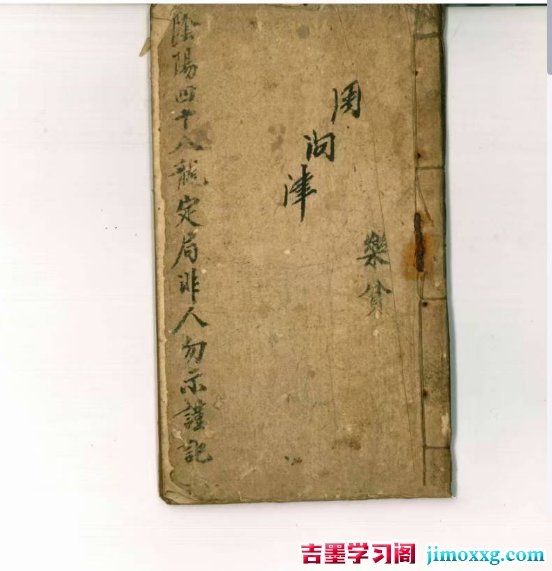 陰陽四十八龍定局非人勿示謹記
周向津
樂貧
吉墨学习阁 jimoxxg.com